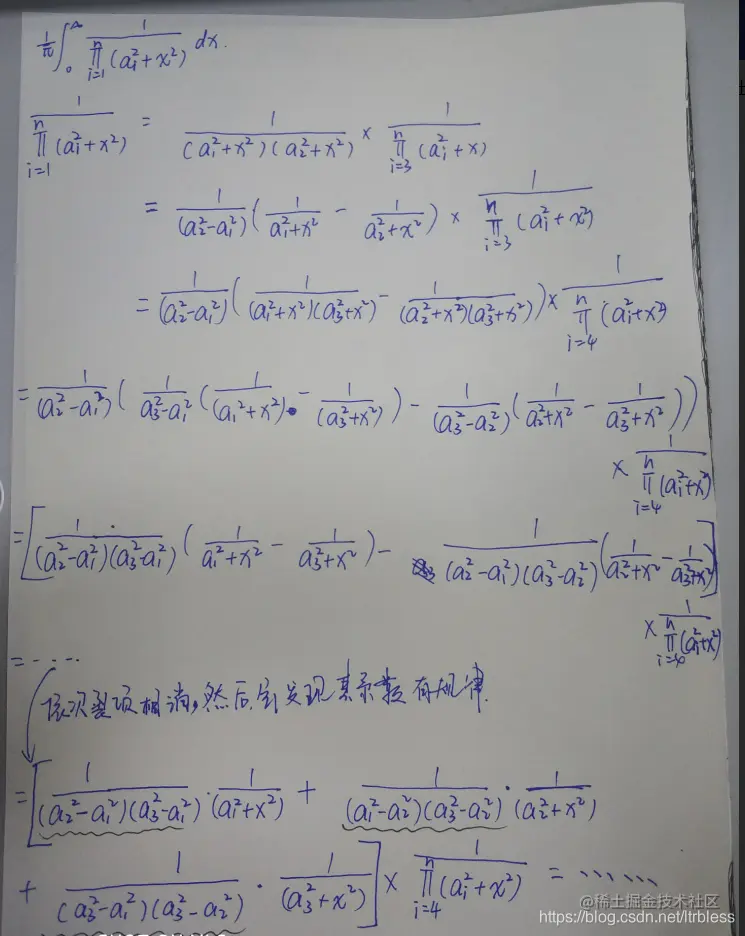 \frac{1}{\pi}\int_0^\infty \frac{1}{\prod_{i=1}^{n}(a_i^2+x^2)} dx.
\frac{1}{\prod_{i=1}^{n}(a_i^2+x^2)} = \frac{1}{(a_1^2+x^2)(a_2^2+x^2)} × \frac{1}{\prod_{i=3}^{n}(a_i^2+x)}
= \frac{1}{(a_2^2-a_1^2)}(\frac{1}{a_1^2+x^2} - \frac{1}{a_2^2+x^2}) × \frac{1}{\prod_{i=3}^{n}(a_i^2+x^2)}
= \frac{1}{(a_2^2-a_1^2)}(\frac{1}{(a_1^2+x^2)(a_3^2+x^2)} - \frac{1}{(a_2^2+x^2)(a_3^2+x^2)}) × \frac{1}{\prod_{i=4}^{n}(a_i^2+x^2)}
= \frac{1}{(a_2^2-a_1^2)}(\frac{1}{a_3^2-a_1^2}(\frac{1}{(a_1^2+x^2)} - \frac{1}{(a_3^2+x^2)}) - \frac{1}{(a_3^2-a_2^2)}(\frac{1}{a_2^2+x^2} - \frac{1}{a_3^2+x^2}))
× \frac{1}{\prod_{i=4}^{n}(a_i^2+x^2)}
= [\frac{1}{(a_2^2-a_1^2)(a_3^2-a_1^2)}(\frac{1}{a_1^2+x^2} - \frac{1}{a_3^2+x^2}) - \frac{1}{(a_2^2-a_1^2)(a_3^2-a_2^2)}(\frac{1}{a_2^2+x^2} - \frac{1}{a_3^2+x^2})]
× \frac{1}{\prod_{i=4}^{n}(a_i^2+x^2)}
= ....
依次裂项相消,然后会发现其系数有规律.
= [\frac{1}{(a_2^2-a_1^2)(a_3^2-a_1^2)} · \frac{1}{(a_1^2+x^2)} + \frac{1}{(a_1^2-a_2^2)(a_3^2-a_2^2)} · \frac{1}{(a_2^2+x^2)}
+ \frac{1}{(a_3^2-a_1^2)(a_3^2-a_2^2)} · \frac{1}{(a_3^2+x^2)}] × \frac{1}{\prod_{i=4}^{n}(a_i^2+x^2)} = ......
@稀土掘金技术社区
https://blog.csdn.net/ltrbless